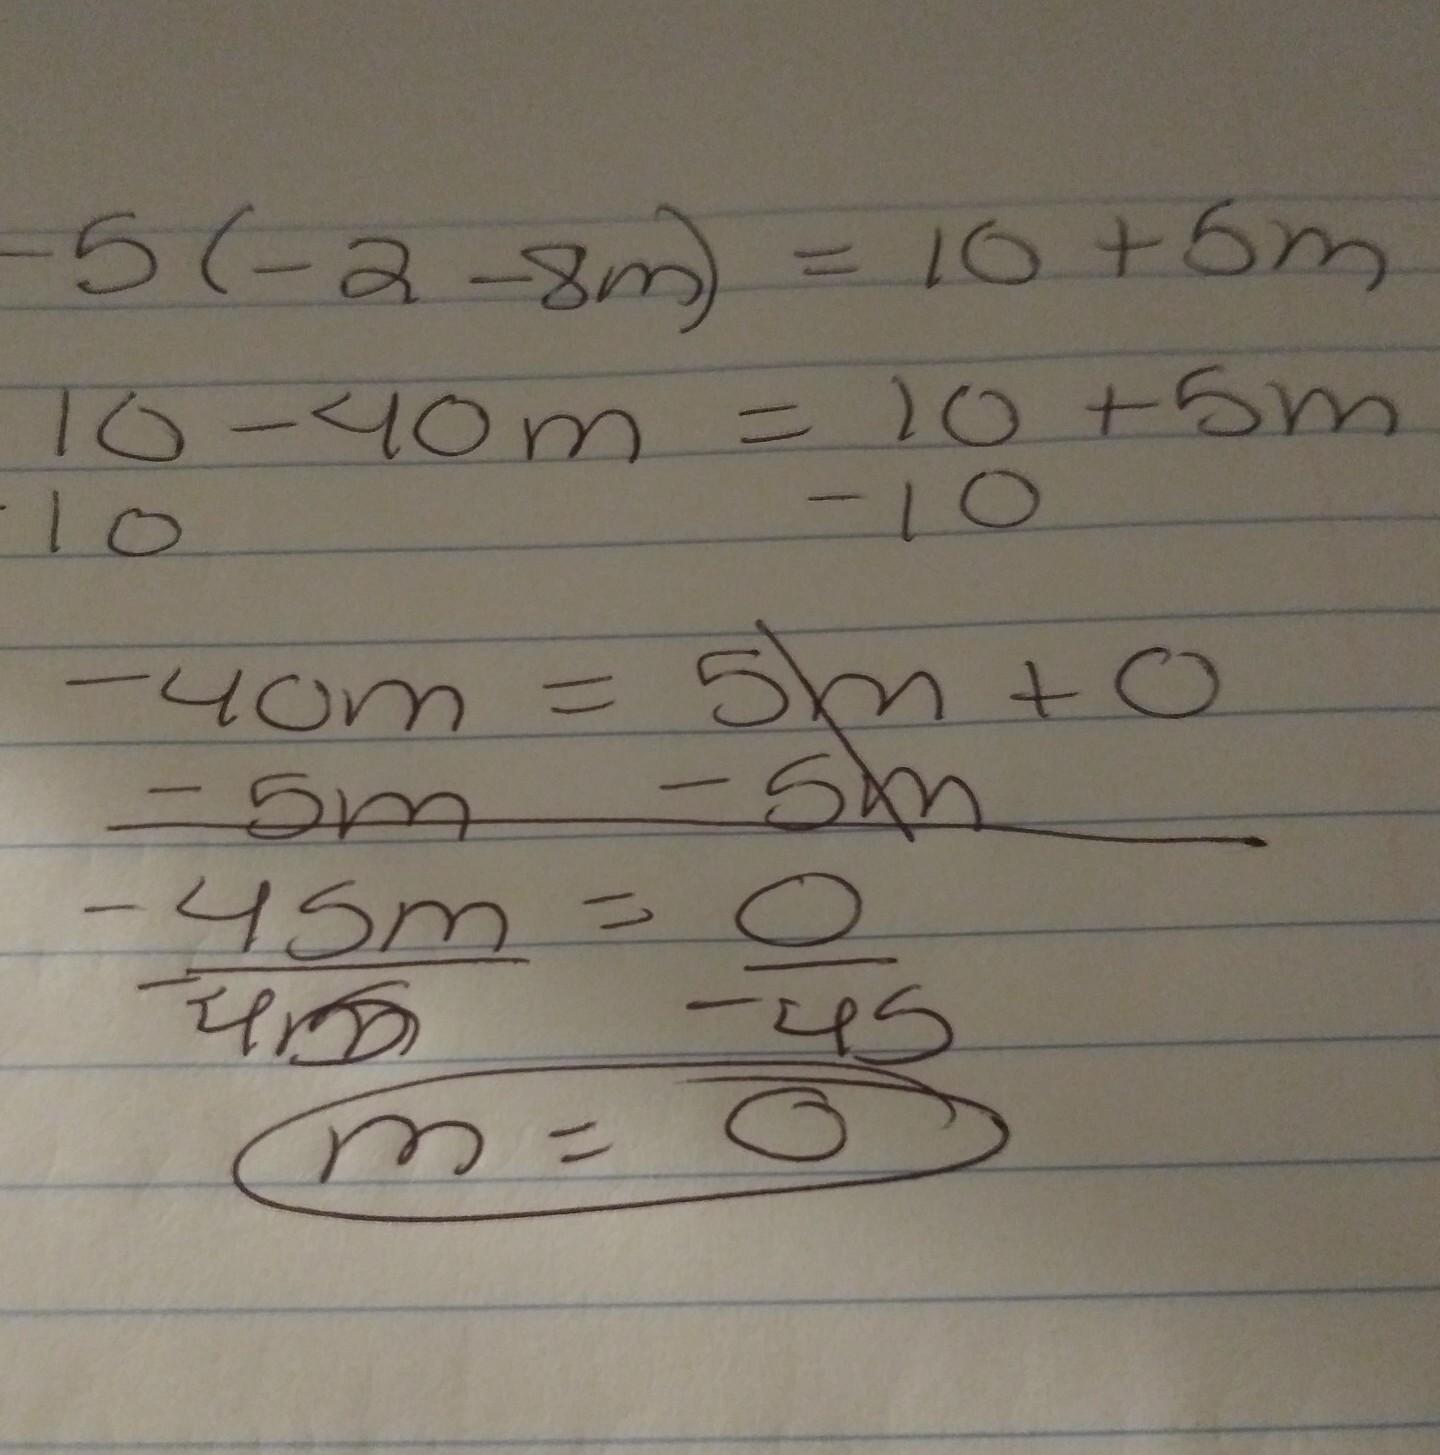 -5(-2-8m) = 10+5m
10-40m = 10+5m
-10 -10
-40m = 5m+0
-5m -5m
-45m = 0
-45 -45
m = 0